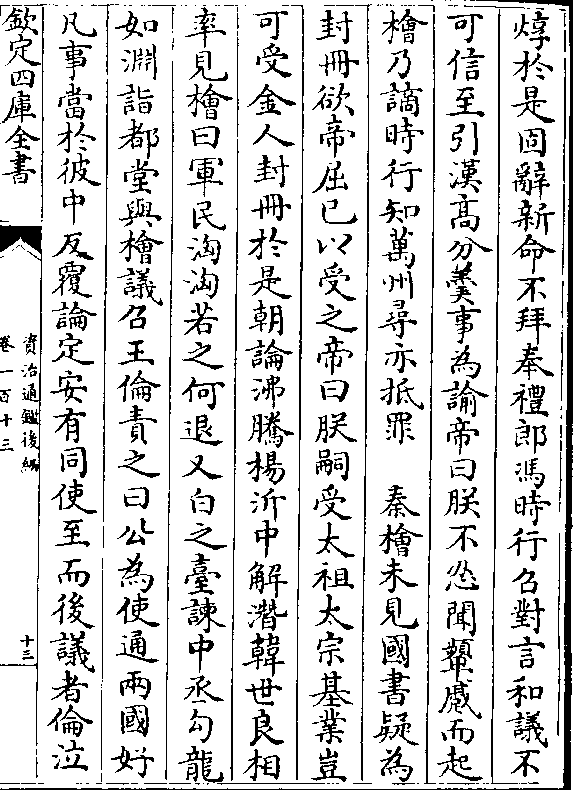 焞於是固辭新命不拜奉禮郎馮時行召對言和議不
可信至引漢髙分羮事為諭帝曰朕不忍聞顰蹙而起
檜乃謫時行知萬州尋亦抵罪　秦檜未見國書疑為
封冊欲帝屈已以受之帝曰朕嗣受太祖太宗基業豈
可受金人封冊於是朝論沸騰楊沂中解潛韓世良相
率見檜曰軍民洶洶若之何退又白之臺諫中丞勾龍
如淵詣都堂與檜議召王倫責之曰公為使通兩國好
凡事當於彼中反覆論定安有同使至而後議者倫泣
欽定四庫全書
資治通鑑後編
卷一百十三
十三